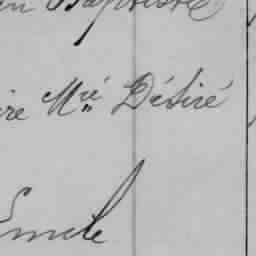 in Baptiste
ire Mie Désiré
Emile